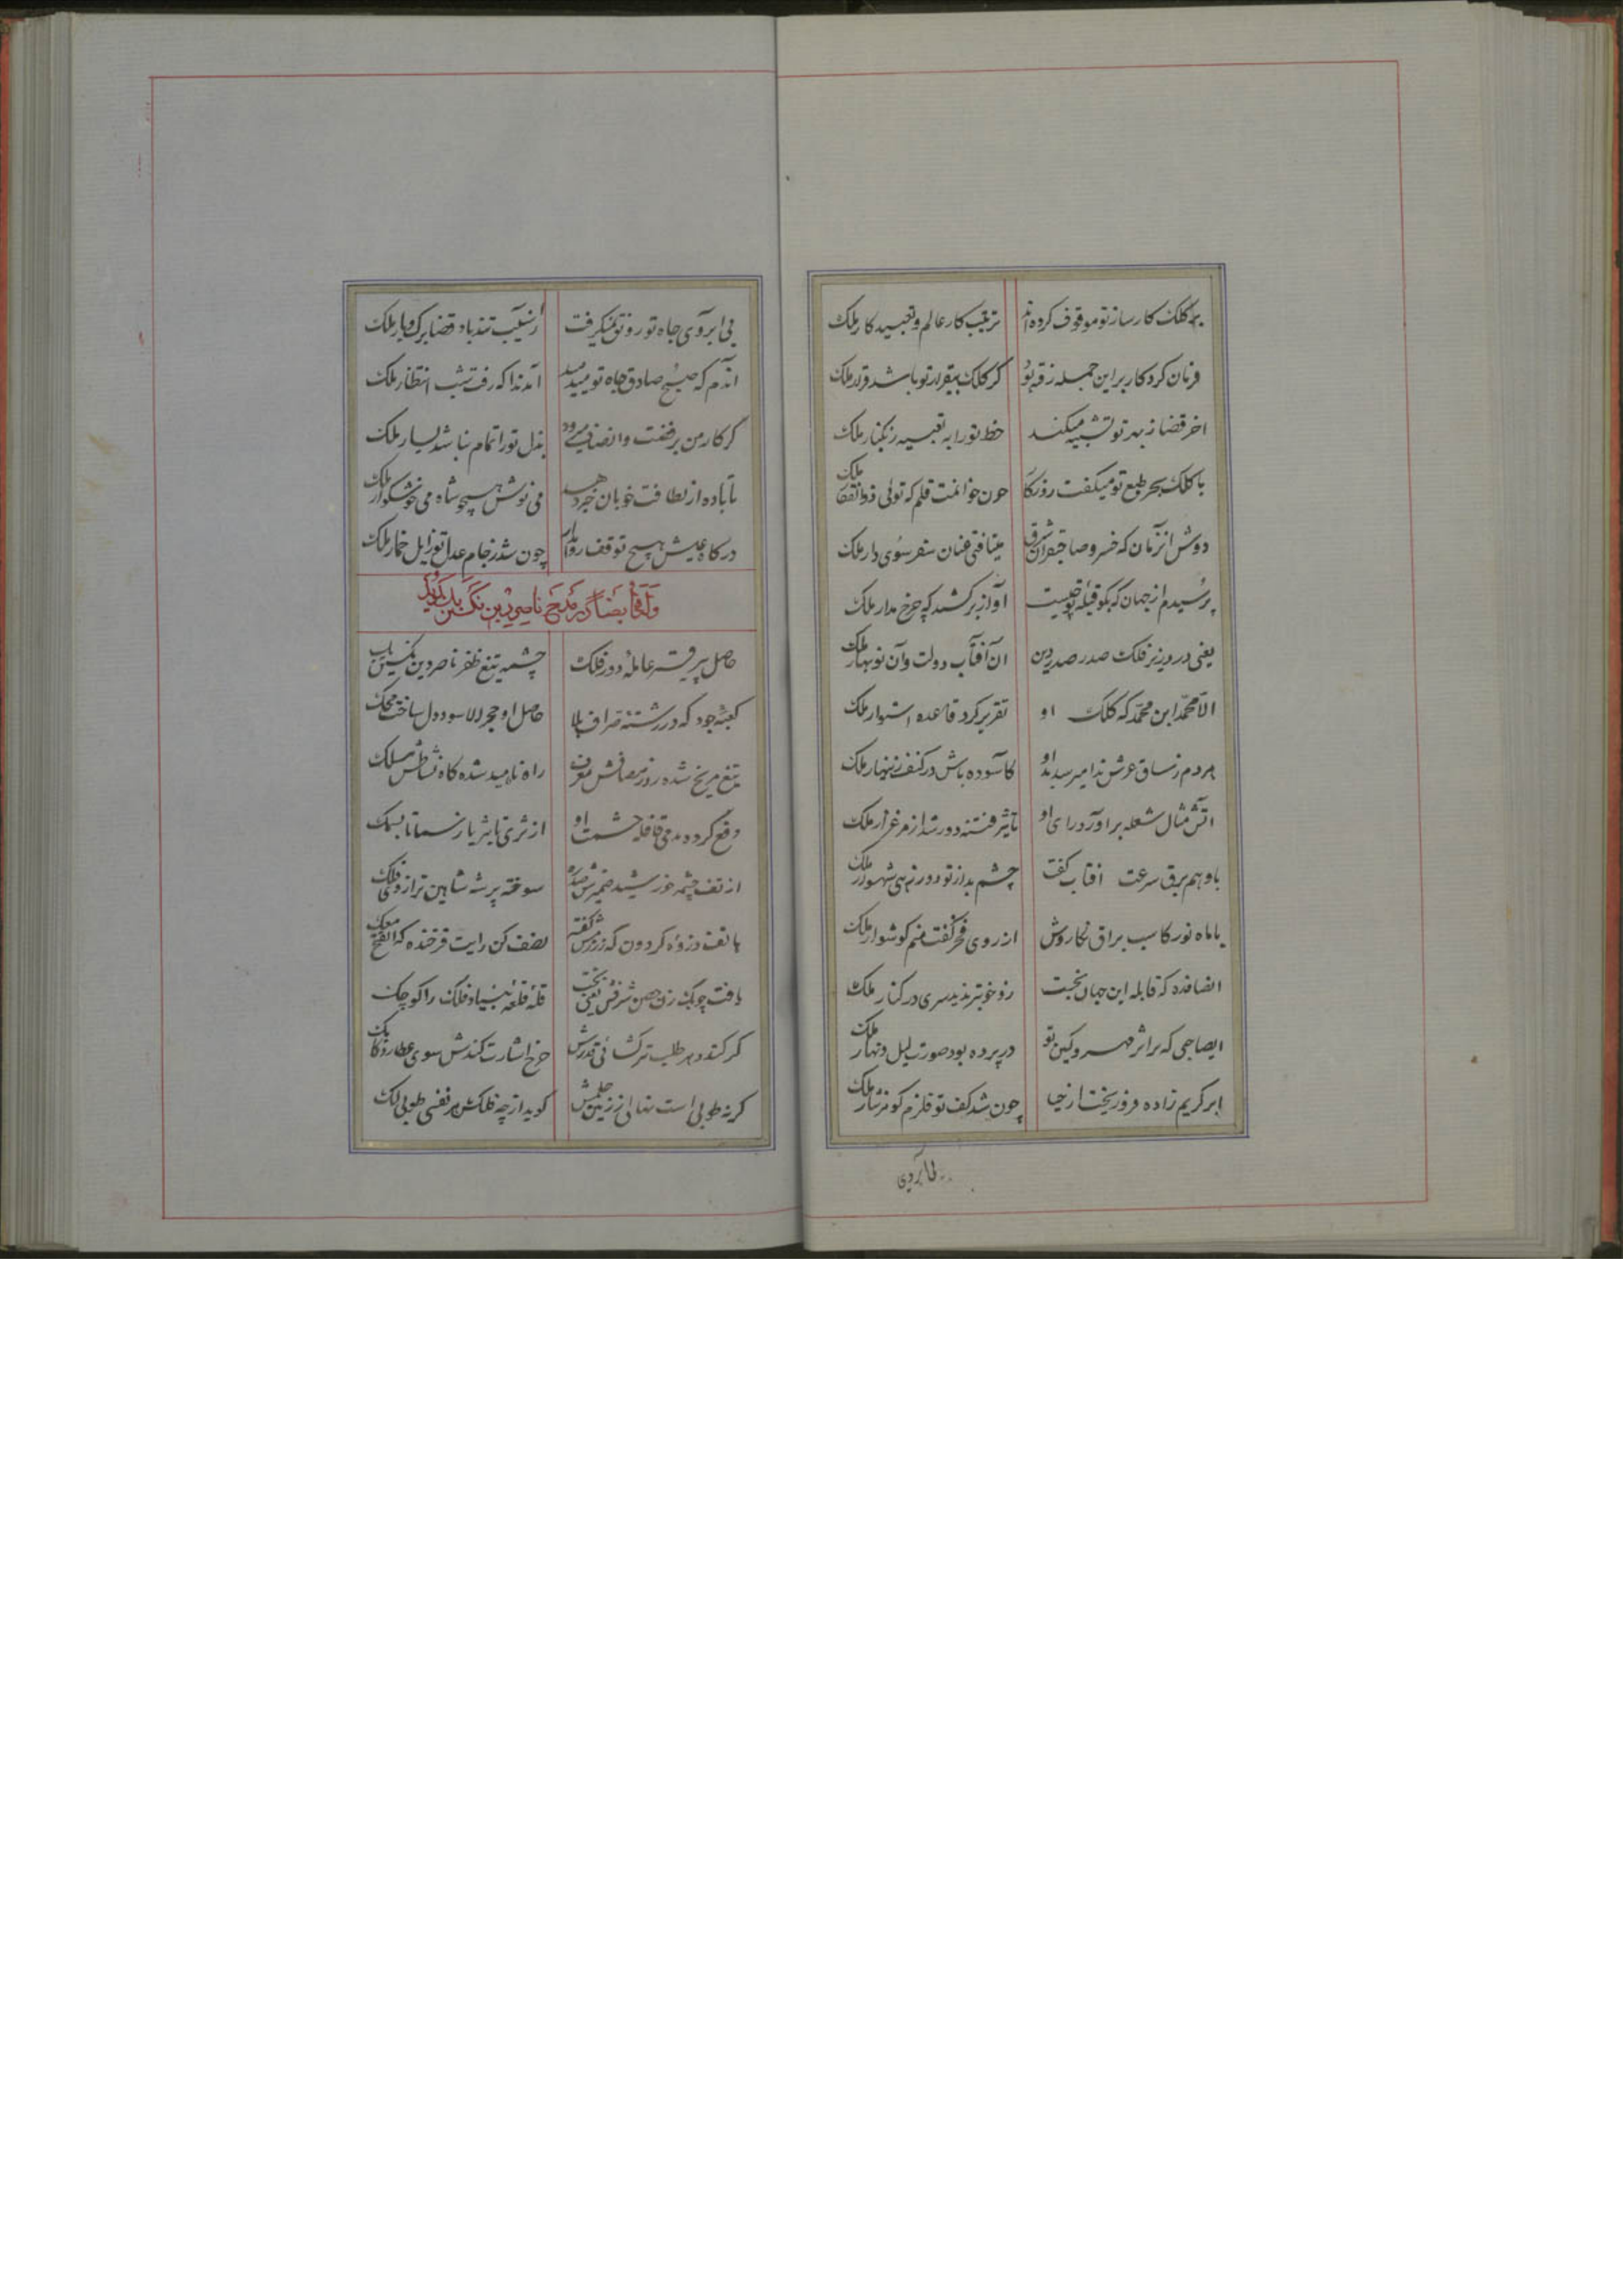 بر کلک کارساز تو موقوف کرده‌اند ترتیب کار عالم و تعبیه کار ملک
فرمان کردکار بر این جمله رفته بود کز کلک بیقرار تو باشد قرار ملک
اخر قضا ز بهر تو تشبیه میکند خط تو را به تعبیه زنگبار ملک
با کلک بحر طبع تو میگفت روزگار چون خوانمت قلم که توئی ذوالفقار ملک
دوش انزمان که خسرو صاحبقران شرق میتافتی عنان سفر سوی دار ملک
پرسیدم از جهان که بگو قبله تو چیست آواز برکشید که چرخ مدار ملک
یعنی در وزیر فلک صدر صدر دین ان آفتاب دولت وآن نوبهار ملک
الا محمد ابن محمد که کلک او تقریر کرد قاعده استوار ملک
هردم ز ساق عرش ندا میرسد بدو کاسوده باش در کنف زینهار ملک
اتش مثال شعله براورد رای او تا شیر فتنه دور شد از مرغزار ملک
با وهم برق سرعت افتاب گفت چشم بد از تو دور زهی شهسوار ملک
با ماه نو رکاب براق نکاروش از روی فخر گفت منم گوشوار ملک
انصاف ده که قابله این جهان نجست زو خوبتر ندید سری در کنار ملک
ایصاحبی که بر اثر مهر و کین تو در پرده بود صورت لیل و نهار ملک
ابر کریم زاده فرو ریخت از حیا چون شد کف تو قلزم گوهر نثار ملک
بی ابروی
بی ابروی جاه تو رونق نمیگرفت از آسیب تندباد قضا برگ و بار ملک
اندم که صبح صادق جاه تو میدمید آمد ندا که رفت شب انتظار ملک
گر کار من برفت و انصاف میرود بذل تو را تمام نباشد یسار ملک
تا باده از لطافت خوبان خبر دهد می نوش همچو شاه می خوشگوار ملک
در کاه عیش هیچ توقف روا مدار چون شد ز جام عدل تو زایل خمار ملک
وله ایضا در مدح ناصر دین نکین بک گوید
حاصل پیر و عامله دور فلک چشمه تیغ ظفر ناصر دین نکین بک
کعبه جود که در رشته صراف بلا حاصل او حجر الاسود دل ساخت محک
تیغ مریخ شده روز مصافش معرف راه ناهید شده کاه نشاطش مسلک
وقع گرد و مدقی قافله حشمت او از ثری تا بثریا ز سما تا بسمک
از تف چشمه خورشید ضمیرش صد ره سوخته پرشه شاهین ترازوی فلک
هاتف ذروه کردون گه رزمش گفته نصف کن رایت فرخنده که الفتح معک
یافت چوبک زن حصن شرفش یعنی بخت قله قلعه نه بنیاد فلک را کوچک
گر کند در طلب ترکشائی قدرش چرخ اشارت کندش سوی عطارد کاینک
گر نه طوبی است نهالی ز زمین حلمش گوید از چه فلکش هر نفسی طوبی لک